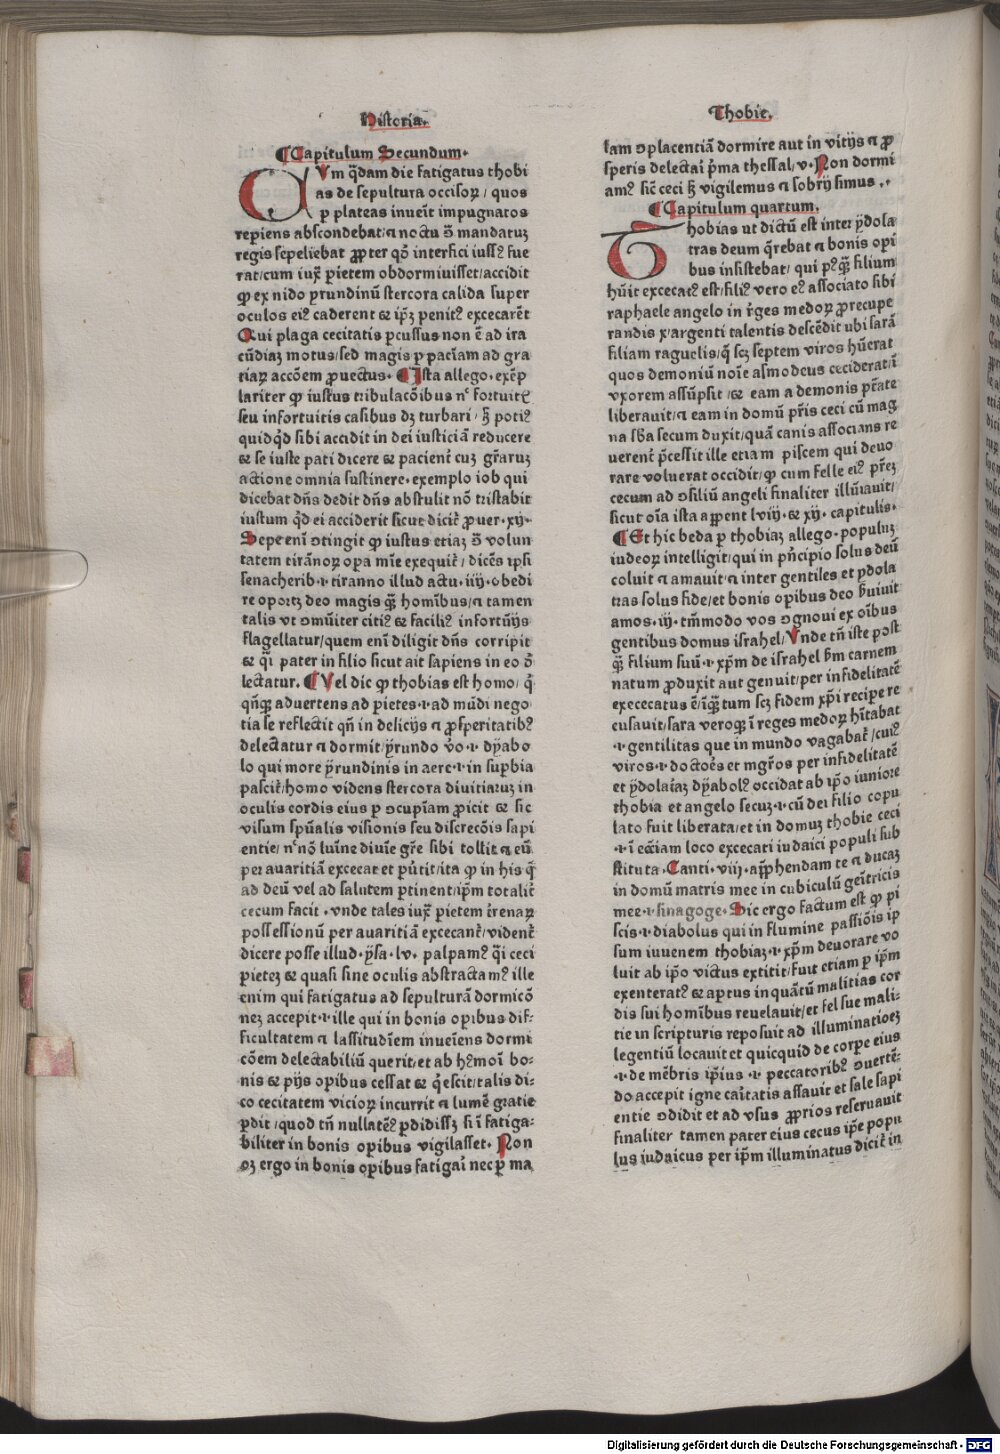 Historia.
Thobie.
¶Capitulum Secundum.
CVm q̄dam die fatigatus thobi
as de sepultura occisoꝝ / quos
ꝑ plateas inueīt impugnatos
reꝑiens abscondebat / ⁊ noctu ꝯ̄ mandatuꝫ
regis sepeliebat ꝓpter qḋ interfici iussꝰ fue
rat / cum iuxͣ ꝑietem obdormiuisset / accidit
ꝙ ex nido ꝑrundinū stercora calida super
oculos eiꝰ caderent ⁊ ip̄ꝫ penitꝰ excecarēt
Qui plaga cecitatis ꝑcussus non ē ad ira
cūdiaꝫ motus / sed magis ꝑ pacīam ad gra
tiaꝝ accōem ꝓuectus. ¶Ista allego. exēp
lariter ꝙ iustus tribulacōibus nͨ fortuitꝭ
seu infortuitis casibus dꝫ turbari / ꝫ̄ potiꝰ
quidqd̄ sibi accidit in dei iusticiā reducere
⁊ se iuste pati dicere ⁊ pacient̄ cuꝫ gr̄aruꝫ
actione omnia sustinere. exemplo iob qui
dicebat dn̄s dedit dn̄s abstulit nō tristabit
iustum qd̄ ei acciderit sicut dicit̄ ꝓuer. xij.
Sepe enī ꝯtingit ꝙ iustus etiaꝫ ꝯ̄ volun
tatem tirānoꝝ oꝑa mīe exequit̄ / dicēs ipsi
senacherib .i. tiranno illud actu. iiij. obedi
re oportꝫ deo magis ꝗ̄ homībus / ⁊ tamen
talis vt ꝯmūiter citiꝰ ⁊ faciliꝰ infortūijs
flagellatur / quem enī diligit dn̄s corripit
⁊ qͣi pater in filio sicut ait sapiens in eo ꝯ̄
lectatur. ¶Vel dic ꝙ thobias est homo / q̄
qn̄ꝗ aduertens ad ꝑietes .i. ad mūdi nego
tia se reflectit qn̄ in delicijs ⁊ ꝓsperitatibꝰ
delectatur ⁊ dormit / yrundo v̊o .i. dyabo
lo qui more yrundinis in aere .i. in suꝑbia
pascit̄ / homo videns stercora diuitiaruꝫ in
oculis cordis eius ꝑ ꝯcupīam ꝓicit ⁊ sic
visum sp̄ualis visionis seu discrecōis sapi
entie / nͨ nō luīne diuīe gr̄e sibi tollit ⁊ eū
per auaritiā excecat et pūtit / ita ꝙ in his q̄
ad deū vel ad salutem ꝑtinent / ip̄m totalit̄
cecum facit. vnde tales iuxͣ ꝑietem t̄renaꝝ
possessionū per auaritiā excecant̄ / vident̄
dicere posse illud. ysa. lv. palpamꝰ qͣi ceci
pieteꝫ ⁊ quasi sine oculis abstractamꝰ ille
enim qui fatigatus ad sepulturā dormicō
neꝫ accepit .i. ille qui in bonis oꝑibus dif⸗
ficultatem ⁊ lassitudīem inueīens dormi
cōem delectabiliū querit / et ab hꝰmoī bo⸗
nis ⁊ pijs oꝑibus cessat ⁊ q̄escit / talis di⸗
co cecitatem vicioꝝ incurrit ⁊ lumē gratie
ꝑdit / quod tn̄ nullatēꝰ ꝑdidissꝫ si ī fatiga⸗
biliter in bonis oꝑibus vigilasset. Non
oꝫ ergo in bonis oꝑibus fatigaī nec ꝑ ma
lam ꝯplacentiā dormire aut in vitijs ⁊ ꝓ
speris delectaī pͥma thessal / v. Non dormi
amꝰ sic̄ ceci ꝫ̄ vigilemus ⁊ sobrij simus .·.
¶Capitulum quartum.
Thobias ut dictū est inter ydola
tras deum q̄rebat ⁊ bonis oꝑi
bus insistebat / qui pꝰꝗ̄ filium
hūit excecatꝰ est / filiꝰ vero eꝰ associato sibi
raphaele angelo in r̄ges medoꝝ ꝓ recupe
randis x argenti talentis descēdit ubi sarā
filiam raguelis / q̄ scꝫ septem viros hūerat
quos demoniū noīe asmodeus occiderat / ī
vxorem assūpsit / ⁊ eam a demonis pt̄ate
liberauit / ⁊ eam in domū pr̄is ceci cū mag
na sb̄a secum duxit / quā canis associans re
uerent̄ p̄cessit ille etiam piscem qui deuo
rare voluerat occidit / ꝙ cum felle eiꝰ pr̄eꝫ
cecum ad ꝯsiliū angeli finaliter illūiauit /
sicut oīa ista aꝑent lviij. ⁊ xij. capitulis.
¶Et hic beda ꝑ thobiaꝫ allego. populuꝫ
iudeoꝝ intelligit / qui in pn̄cipio solus deū
coluit ⁊ amauit / ⁊ inter gentiles et ydola
tras solus fide / et bonis oꝑibus deo ẜuiuit
amos. iij. tm̄modo vos ꝯgnoui ex oībus
gentibus domus israhel / Vnde tn̄ iste post
ꝗ̄ filium suū .i. xp̄m de israhel ẜm carnem
natum ꝓduxit aut genuit / per infidelitatē
excecatus ē / inꝗ̄tum scꝫ fidem xp̄i recipere
cusauit / sara veroꝗ ī reges medoꝝ hītabat
.i. gentilitas que in mundo vagabat̄ / cuiꝰ
viros .i. doctoēs et mgr̄os per infidelitatē
et ydolaīaꝫ dyabolꝰ occidat ab ip̄o iuniore
thobia et angelo secuꝫ .i. cū dei filio copu
lato fuit liberata / et in domuꝫ thobie ceci
.i. ī ecc̄iam loco excecati iudaici populi sub
stituta. Canti. viij. apͣphendam te ⁊ ducaꝫ
in domū matris mee in cubiculū geīt̄ricis
mee .i. sinagoge. Sic ergo factum est ꝙ pi
scis .i. diabolus qui in flumine passiōis ip
sum iuuenem thobiaꝫ .i. xp̄m deuorare vo
luit ab ip̄o victus extitit / fuit etiam ꝑ ip̄m
exenteratꝰ ⁊ aꝑtus in quātū malitias cor
dis sui homībus reuelauit / et fel sue mali⸗
tie in scripturis reposuit ad illuminatioeꝫ
legentiū locauit et quicquid de corpe eius
.i. de mēbris ip̄ius .i. peccatoribꝰ ꝯuertē⸗
do accepit igne caītatis assauit et sale sapi
entie ꝯdidit et ad vsus ꝓprios reseruauit
finaliter tamen pater eius cecus ip̄e popu
lus iudaicus per ip̄m illuminatus dicit̄ in
Digitalisierung gefördert durch die Deutsche Forschungsgemeinschaft - DFG